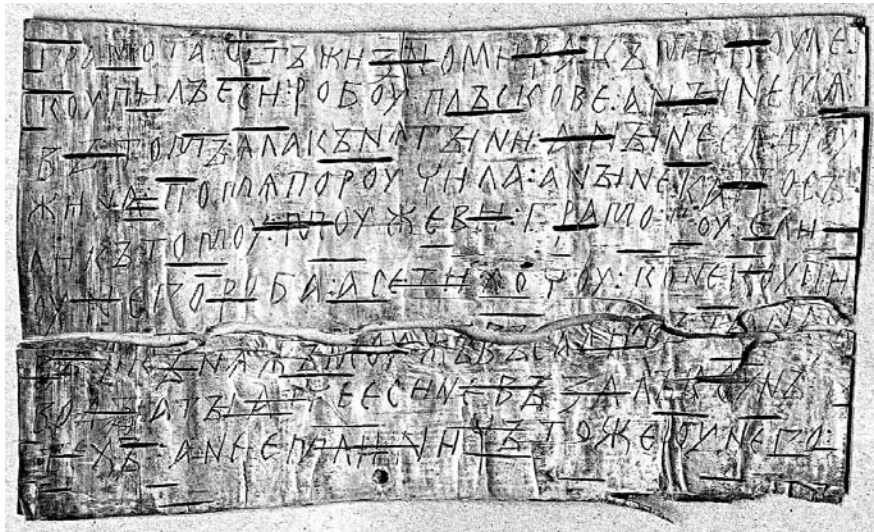 грамота : отъ жизномира : къ микоуле :
коупилъ еси : робоу : плъскове : а нъіне мѧ :
въ томъ : ѧла кънѧгъіни : а нъіне сѧ дроу
жина : по мѧ пороучила : а нъіне ка : посъ
ли къ томоу : моужеви : грамотоу : ели
оу него роба : а се ти хочоу : коне коупи
въ : и кънѧжъ моужъ въсадивъ : та на съ
водъі : а тъі атче еси не възалъ коунъ :
техъ : а не емли : ничъто же оу него :